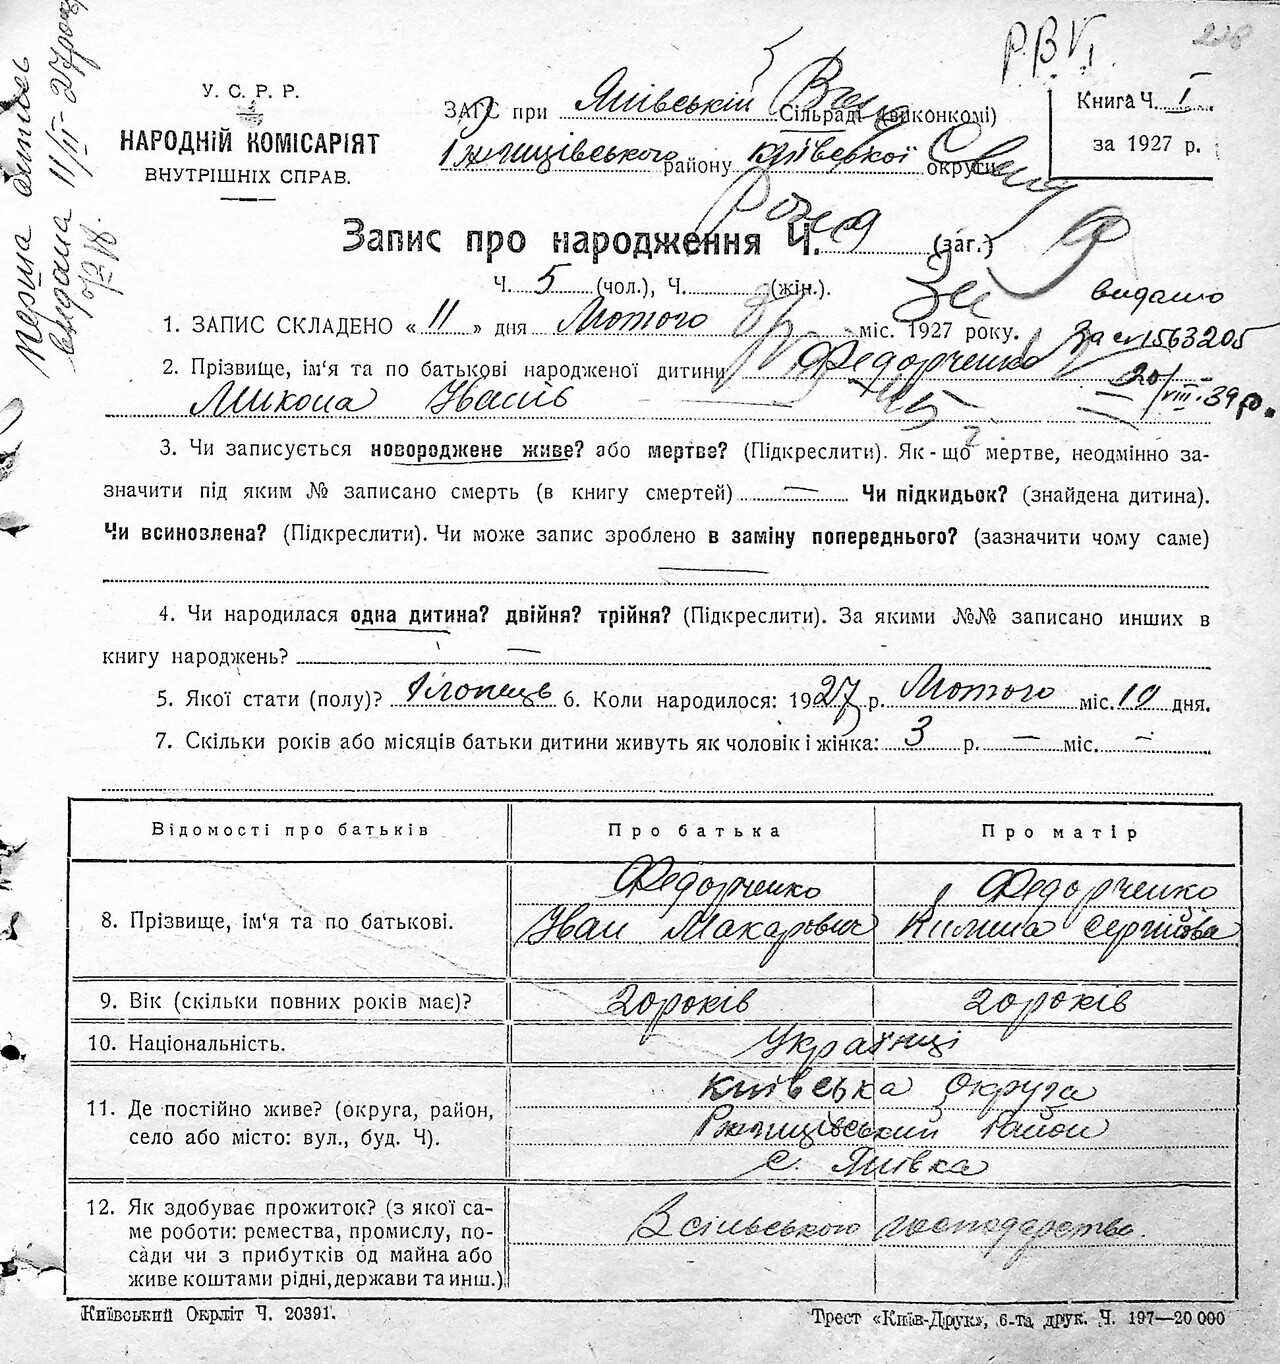 Р.В.V.
238
Перша випись
видана 11/II-27 року
У. С. Р. Р.
НАРОДНІЙ КОМІСАРІЯТ
ВНУТРІШНІХ СПРАВ.
ЗАГС при Янівській Сільраді (виконкомі)
Ржищівського району Київської округи
Книга Ч. I
за 1927 р.
Запис про народження Ч. 9 (заг.)
Ч. 5 (чол.), Ч. (жін.).
видано
за сп 1563205
20/VIII-39 р.
1. ЗАПИС СКЛАДЕНО « 11 » дня Лютого міс. 1927 року.
2. Прізвище, ім'я та по батькові народженої дитини Федорченко
Микола Іванів
3. Чи записується новороджене живе? або мертве? (Підкреслити). Як-що мертве, неодмінно за-
значити під яким № записано смерть (в книгу смертей) — Чи підкидьок? (знайдена дитина).
Чи всиновлена? (Підкреслити). Чи може запис зроблено в заміну попереднього? (зазначити чому саме)
—
4. Чи народилася одна дитина? двійня? трійня? (Підкреслити). За якими №№ записано инших в
книгу народжень? —
5. Якої стати (полу)? Хлопець 6. Коли народилося: 1927 р. Лютого міс. 10 дня.
7. Скільки років або місяців батьки дитини живуть як чоловік і жінка: 3 р. — міс. —
Відомості про батьків Про батька Про матір
8. Прізвище, ім'я та по батькові.
Федорченко
Іван Макарович
Федорченко
Килина Сергіїва
9. Вік (скільки повних років має)? 20 років 20 років
10. Національність. Українці
11. Де постійно живе? (округа, район,
село або місто: вул., буд. Ч).
Київська Округа
Ржищівський Район
с. Янівка
12. Як здобуває прожиток? (з якої са-
ме роботи: ремества, промислу, по-
сади чи з прибутків од майна або
живе коштами рідні, держави та инш.)
З сільського господарства.
Київський Окрліт Ч. 20391. Трест «Київ-Друк», 6-та друк. Ч. 197—20 000